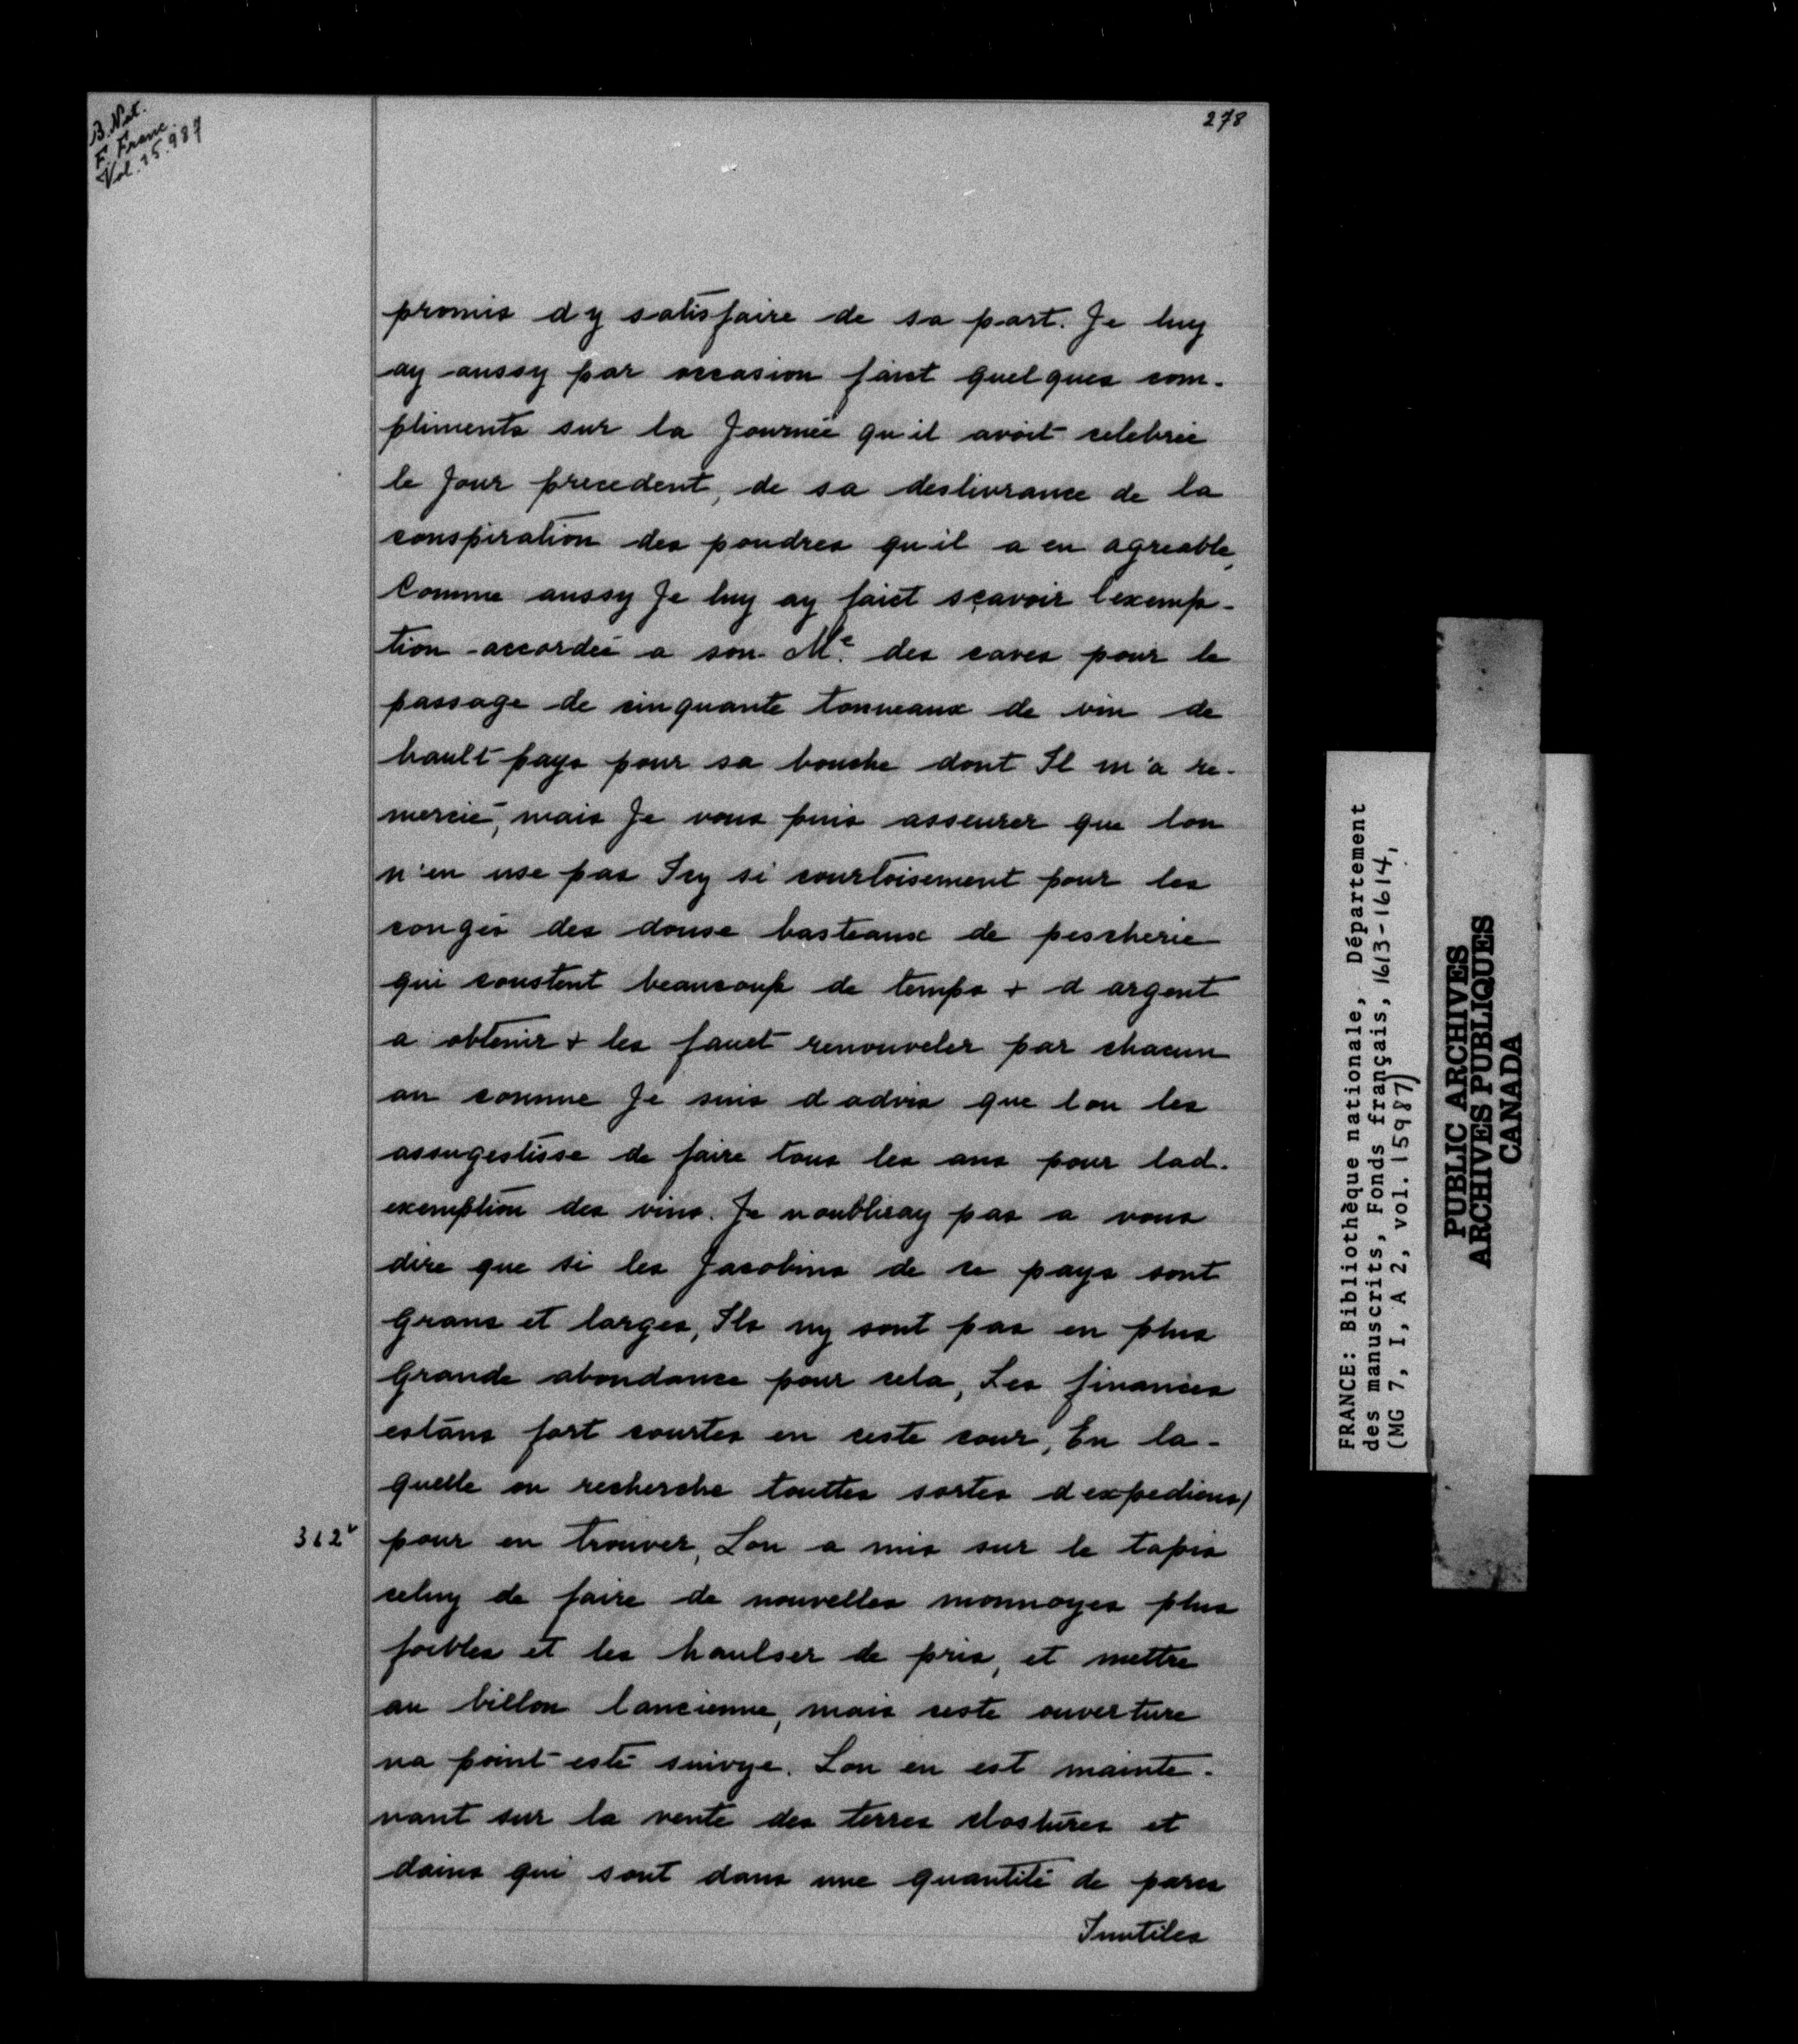 B. Nat.
F. Franc.
Vol. 15.987
278
promis d y satisfaire de sa part. Je luy
ay aussy par occasion faict quelques com-
pliments sur la Journée qu'il avoit celebrée
le Jour precedent, de sa deslivrance de la
conspiration des poudres qu'il a eu agreable,
Comme aussy Je luy ay faict sçavoir l'exemp-
tion accordée a son Me. des caves pour le
passage de cinquante tonneaux de vin de
hault pays pour sa bouche dont Il m'a re-
mercié, mais Je vous puis asseurer que lon
n'en use pas Icy si courtoisement pour les
congés des douse basteaux de pescherie
qui coustent beaucoup de temps & d argent
a obtenir & les fauct renouveler par chacun
an comme Je suis d advis que lon les
assugestisse de faire tous les ans pour lad.
exemption des vins. Je n oubliray pas a vous
dire que si les Jacobins de ce pays sont
grans et larges, Ils ny sont pas en plus
grande abondance pour cela, Les finances
estans fort courtes en ceste cour, En la-
quelle on recherche touttes sortes d expediens/
362v pour en trouver, Lon a mis sur le tapis
celuy de faire de nouvelles monnoyes plus
foibles et les haulser de pris, et mettre
au billon lancienne, mais ceste ouverture
na point esté suivye. Lon en est mainte-
nant sur la vente des terres clostures et
dains qui sont dans une quantité de parcs
Inutiles
FRANCE: Bibliothèque nationale, Département
des manuscrits, Fonds français, 1613-1614,
(MG 7, I, A 2, vol. 15987)
PUBLIC ARCHIVES
ARCHIVES PUBLIQUES
CANADA